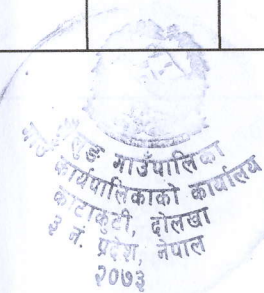 गाउँपालिका
कार्यपालिकाको कार्यालय
काटाकुटी, दोलखा
३ नं. प्रदेश, नेपाल
२०७३